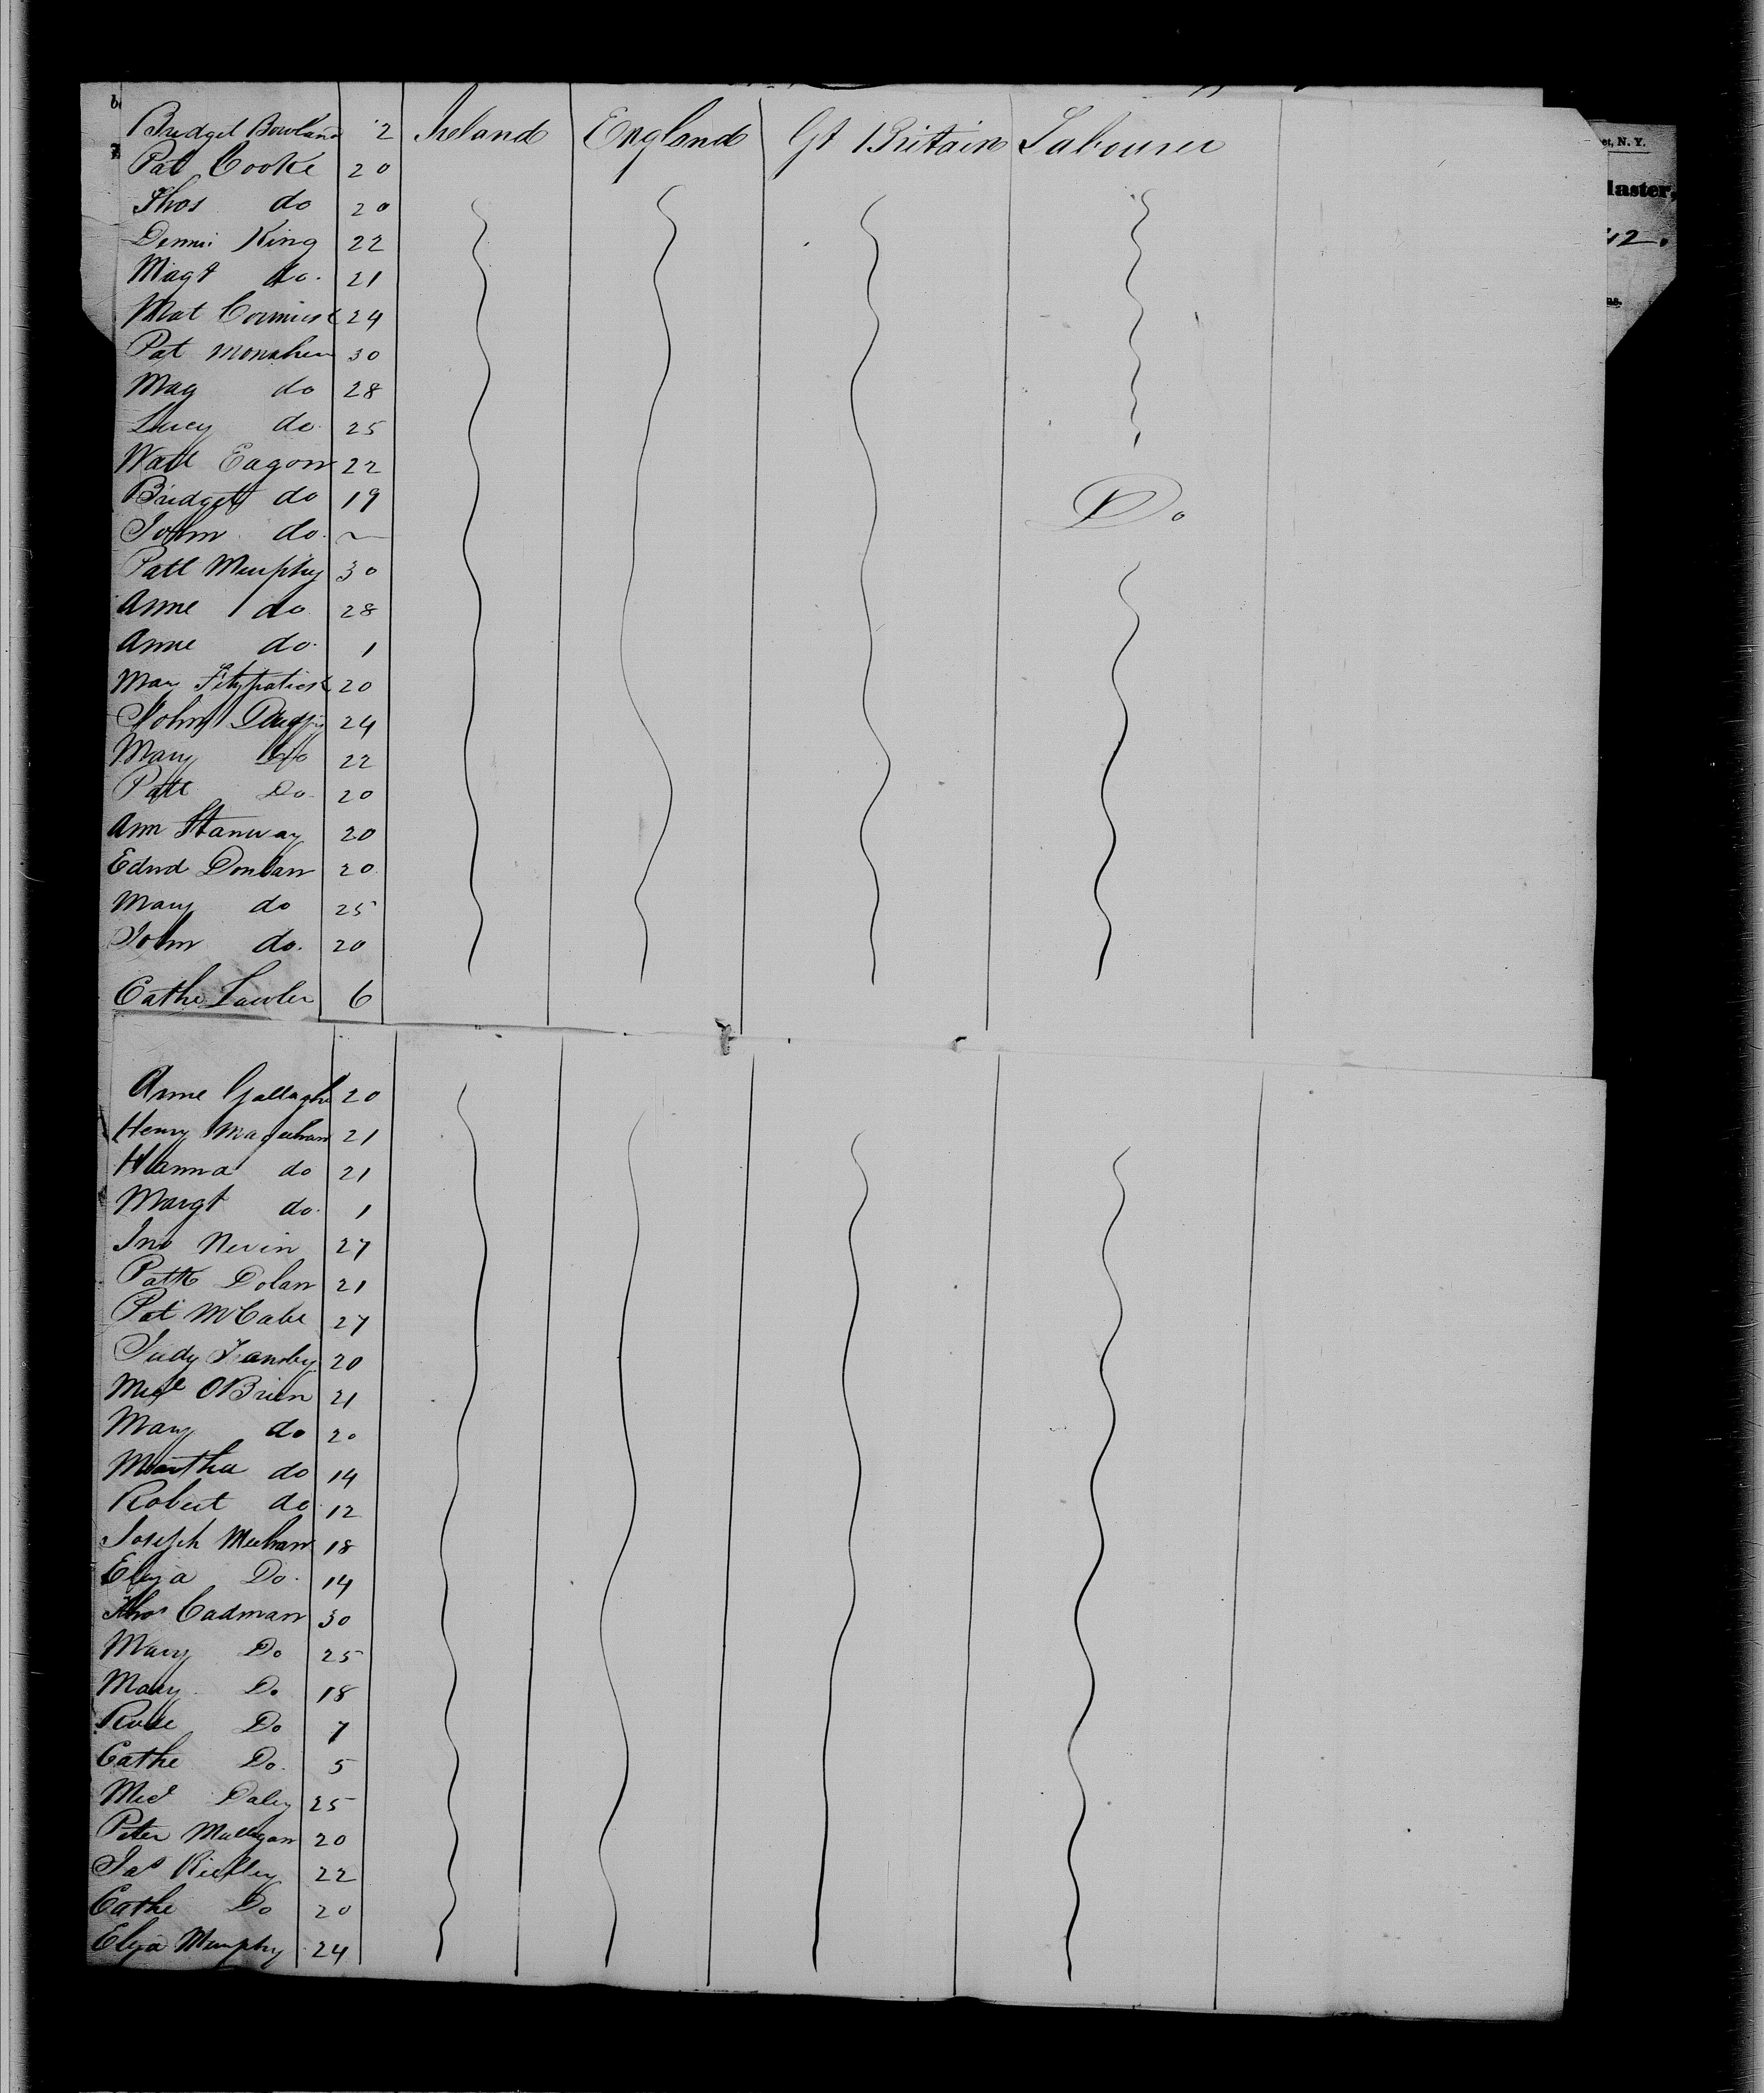 Bridget Bowland 2 Ireland England Gt Britain Labourer
Pat Cooke 20
Thos do 20
Dennis King 22
Magt do. 21
Mat Cormick 24
Pat Monahan 30
Mag do 28
Lucy do. 25
Patt Eagan 22
Bridget do 19 Do
John do.
Patt Murphy 30
Anne do 28
Anne do. 1
Mary Fitzpatrick 20
John Duffy 24
Mary Do 22
Patt Do 20
Ann Stanway 20
Edwd Donlan 20
Mary do 25
John do. 20
Cathe Lawler 6
Anne Gallagher 20
Henry 21
Hanna do 21
Margt do. 1
Jno Nevin 27
Patk Dolan 21
Pat McCabe 27
Judy 20
Micl OBrien 21
Mary do 20
Martha do 14
Robert do. 12
Joseph Meehan 18
Eliza Do. 14
Thos Cadman 30
Mary Do 25
Mary Do 18
Rose Do 7
Cathe Do. 5
Micl Daley 25
Peter Mulligan 20
Jas Rielley 22
Cathe Do 20
Eliza Murphy 24
et, N. Y.
Master,
42.